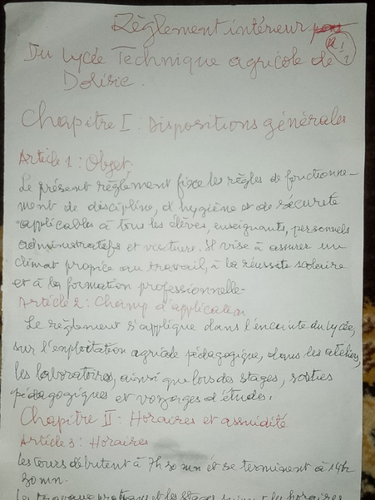 Règlement intérieur
Du Lycée Technique agricole de
Dolisie.
Chapitre I : Dispositions générales
Article 1 : Objet
Le présent règlement fixe les règles de fonctionne-
ment de discipline, d'hygiène et de sécurité
applicables à tous les élèves, enseignants, personnels
administratifs et visiteurs. Il vise à assurer un
climat propice au travail, à la réussite scolaire
et à la formation professionnelle.
Article 2 : Champ d'application
Le règlement s'applique dans l'enceinte du lycée,
sur l'exploitation agricole pédagogique, dans les ateliers,
les laboratoires, ainsi que lors des stages, sorties
pédagogiques et voyages d'études.
Chapitre II : Horaires et assiduité
Article 3 : Horaires
Les cours débutent à 7h 30 mn et se terminent à 14h
30 mn.
Les travaux pratiques et les stages suivent les horaires